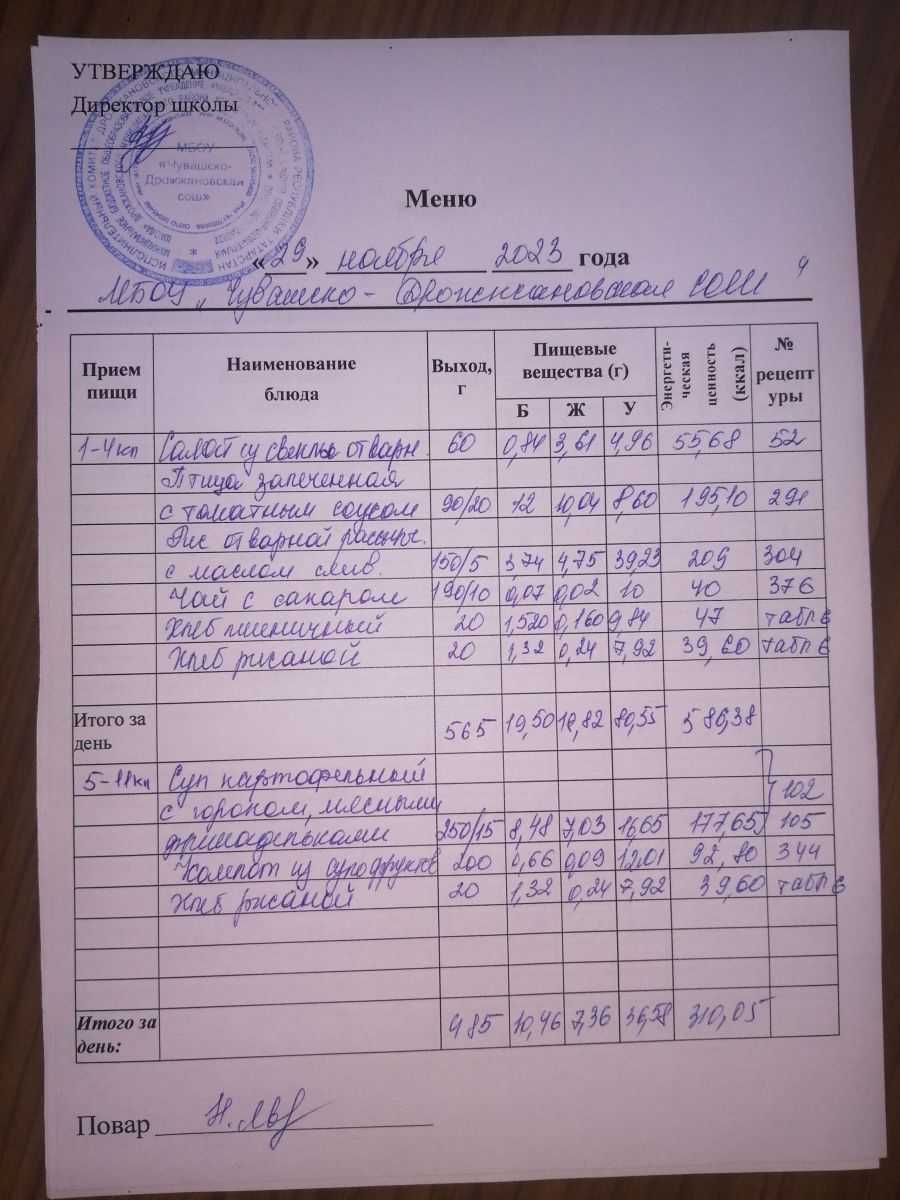 УТВЕРЖДАЮ
Директор школы
МБОУ
«Чувашско-
Дрожжановская
сош»
Меню
«29» ноября 2023 года
МБОУ „Чувашско-Дрожжановская СОШ“
Прием пищи Наименование блюда Выход, г Пищевые вещества (г) Б Ж У Энергети-ческая ценность (ккал) № рецептуры
1-4 кл Салат из свеклы отварн. 60 0,84 3,61 4,96 55,68 52
Птица запеченная
с томатным соусом 90/20 12 10,04 8,60 195,10 291
Рис отварной рассыпч.
с маслом слив. 150/5 3,74 4,75 39,23 209 304
Чай с сахаром 190/10 0,07 0,02 10 40 376
Хлеб пшеничный 20 1,520 0,160 9,84 47 табл 6
Хлеб ржаной 20 1,32 0,24 7,92 39,60 табл 6
Итого за день 565 19,50 18,82 80,55 586,38
5-11 кл Суп картофельный
с горохом, мясными 102
фрикадельками 250/15 8,48 7,03 16,65 177,65 105
Компот из сухофруктов 200 0,66 0,09 12,01 92,80 344
Хлеб ржаной 20 1,32 0,24 7,92 39,60 табл 6
Итого за день: 485 10,46 7,36 36,58 310,05
Повар